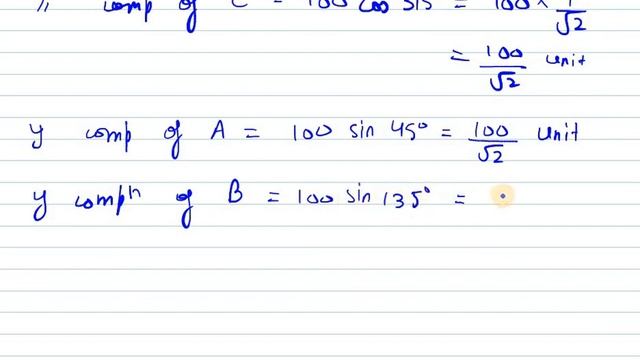 comp of C = 100 cos 315 = 100 × 1/√2
= 100/√2 unit
y comp of A = 100 sin 45° = 100/√2 unit
y compⁿ of B = 100 sin 135° =